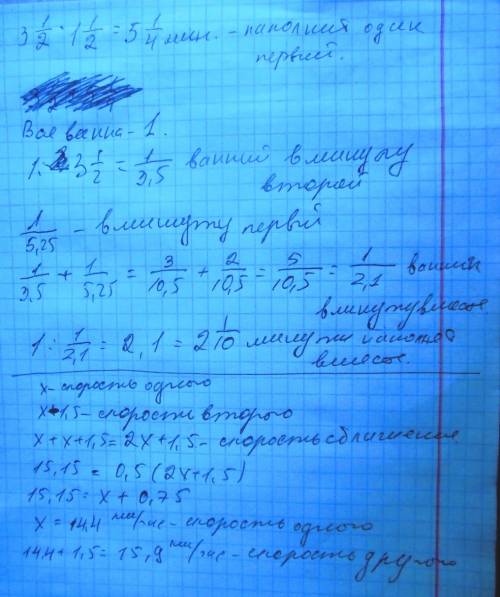 3 1/2 · 1 1/2 = 5 1/4 мин. - наполнит один
первый.
Вся ванна - 1.
1 : 3 1/2 = 1/3,5 ванный в минуту
второй
1/5,25 - в минуту первый
1/3,5 + 1/5,25 = 3/10,5 + 2/10,5 = 5/10,5 = 1/2,1 ванны
в минуту вместе
1 : 1/2,1 = 2,1 = 2 1/10 минуты наполнят
вместе.
x - скорость одного
x + 1,5 - скорость второго
x + x + 1,5 = 2x + 1,5 - скорость сближения
15,15 = 0,5 (2x + 1,5)
15,15 = x + 0,75
x = 14,4 км/час - скорость одного
14,4 + 1,5 = 15,9 км/час - скорость другого